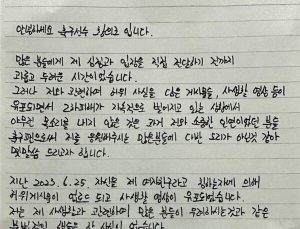 안녕하세요 축구선수 황의조 입니다.
많은 분들에게 제 심정과 입장을 직접 전달하기 전까지
괴롭고 두려운 시간이었습니다.
그러나 저와 관련하여 허위 사실을 담은 게시물들, 사생활 영상 등이
유포되면서 2차피해가 지속적으로 벌어지고 있는 상황에서
아무런 목소리를 내지 않는 것은 과거 저와 소중한 인연이었던 분들
축구팬으로써 저를 응원해주시는 많은분들에 대한 도리가 아닌것 같아
말씀 드리고자 합니다.
지난 2023. 6. 25. 자신을 제 여자친구라고 칭하는자에 의해
허위게시물이 업로드 되고 사생활 영상이 유포되었습니다.
저는 제 사생활과 관련하여 많은 분들이 우려하시는것과 같은
불법적인 행동을 한 사실이 없습니다.